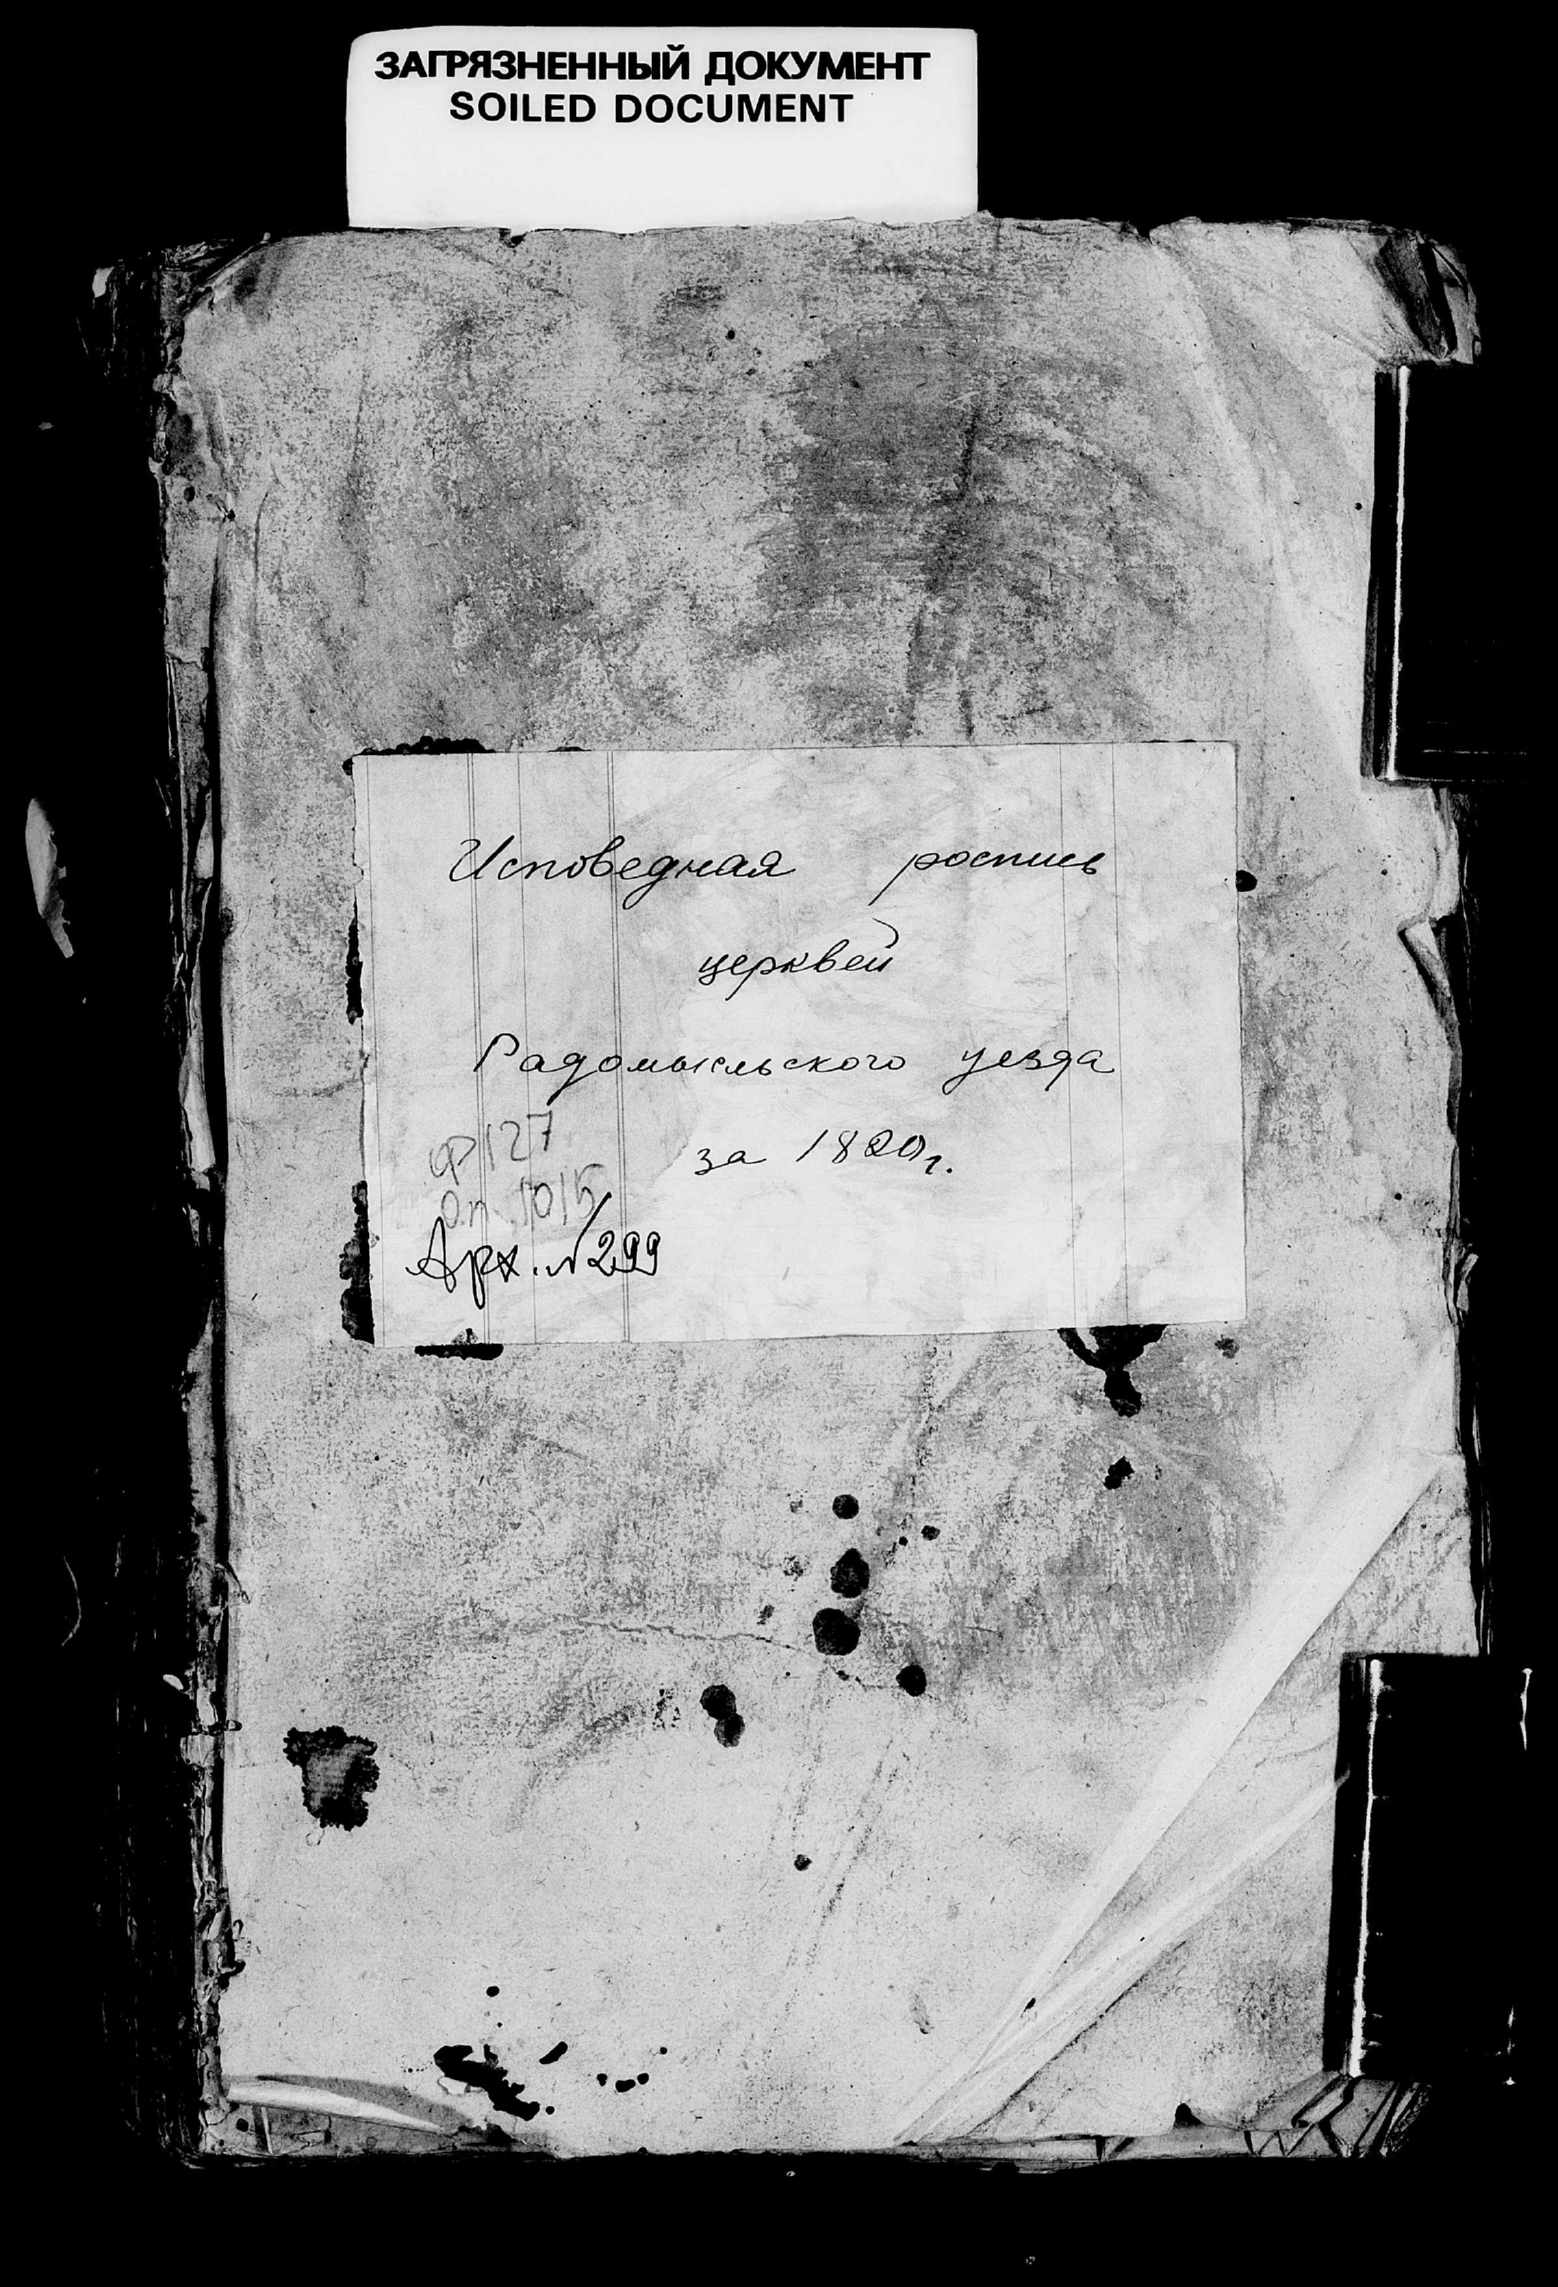 ЗАГРЯЗНЕННЫЙ ДОКУМЕНТ
SOILED DOCUMENT
Исповедная роспись
церквей
Радомысльского уезда
за 1820г.
Ф 127
Оп. 1015
Арх. №299